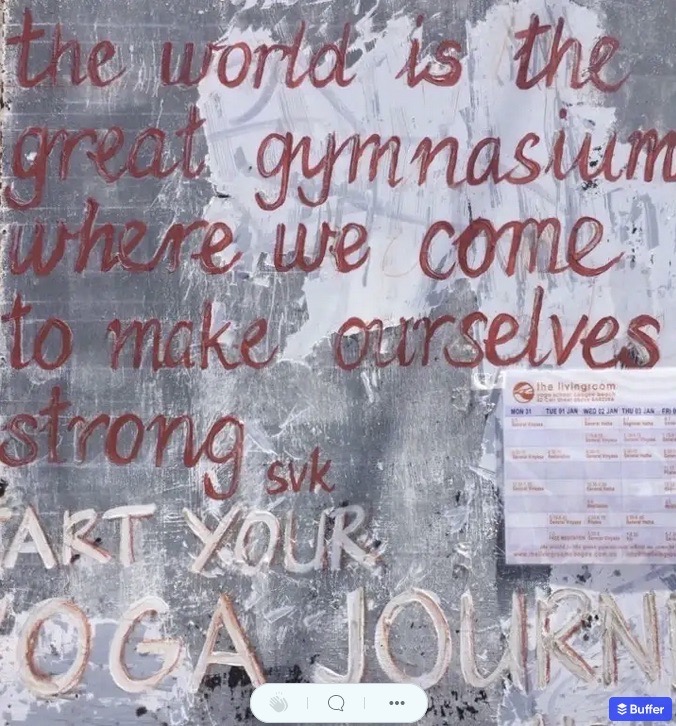 the world is the
great gymnasium
where we come
to make ourselves
strong
svk
ART YOUR
OGA JOURN
the livingroom
MON 31 TUE 01 JAN WED 02 JAN THU 03 JAN FRI
Buffer